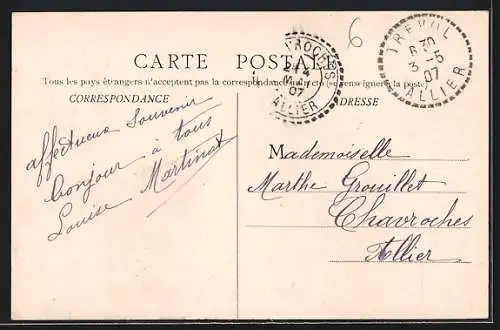 6
CARTE POSTALE
Tous les pays étrangers n'acceptent pas la correspondance au recto (se renseigner à la poste)
CORRESPONDANCE
ADRESSE
TREVOL
8 30
3 -5
07
ALLIER
CHAVROCHES
MAI
07
ALLIER
affectueux Souvenir
bonjour à tous
Louise Martinat
Mademoiselle
Marthe Grouillet
Chavroches
Allier